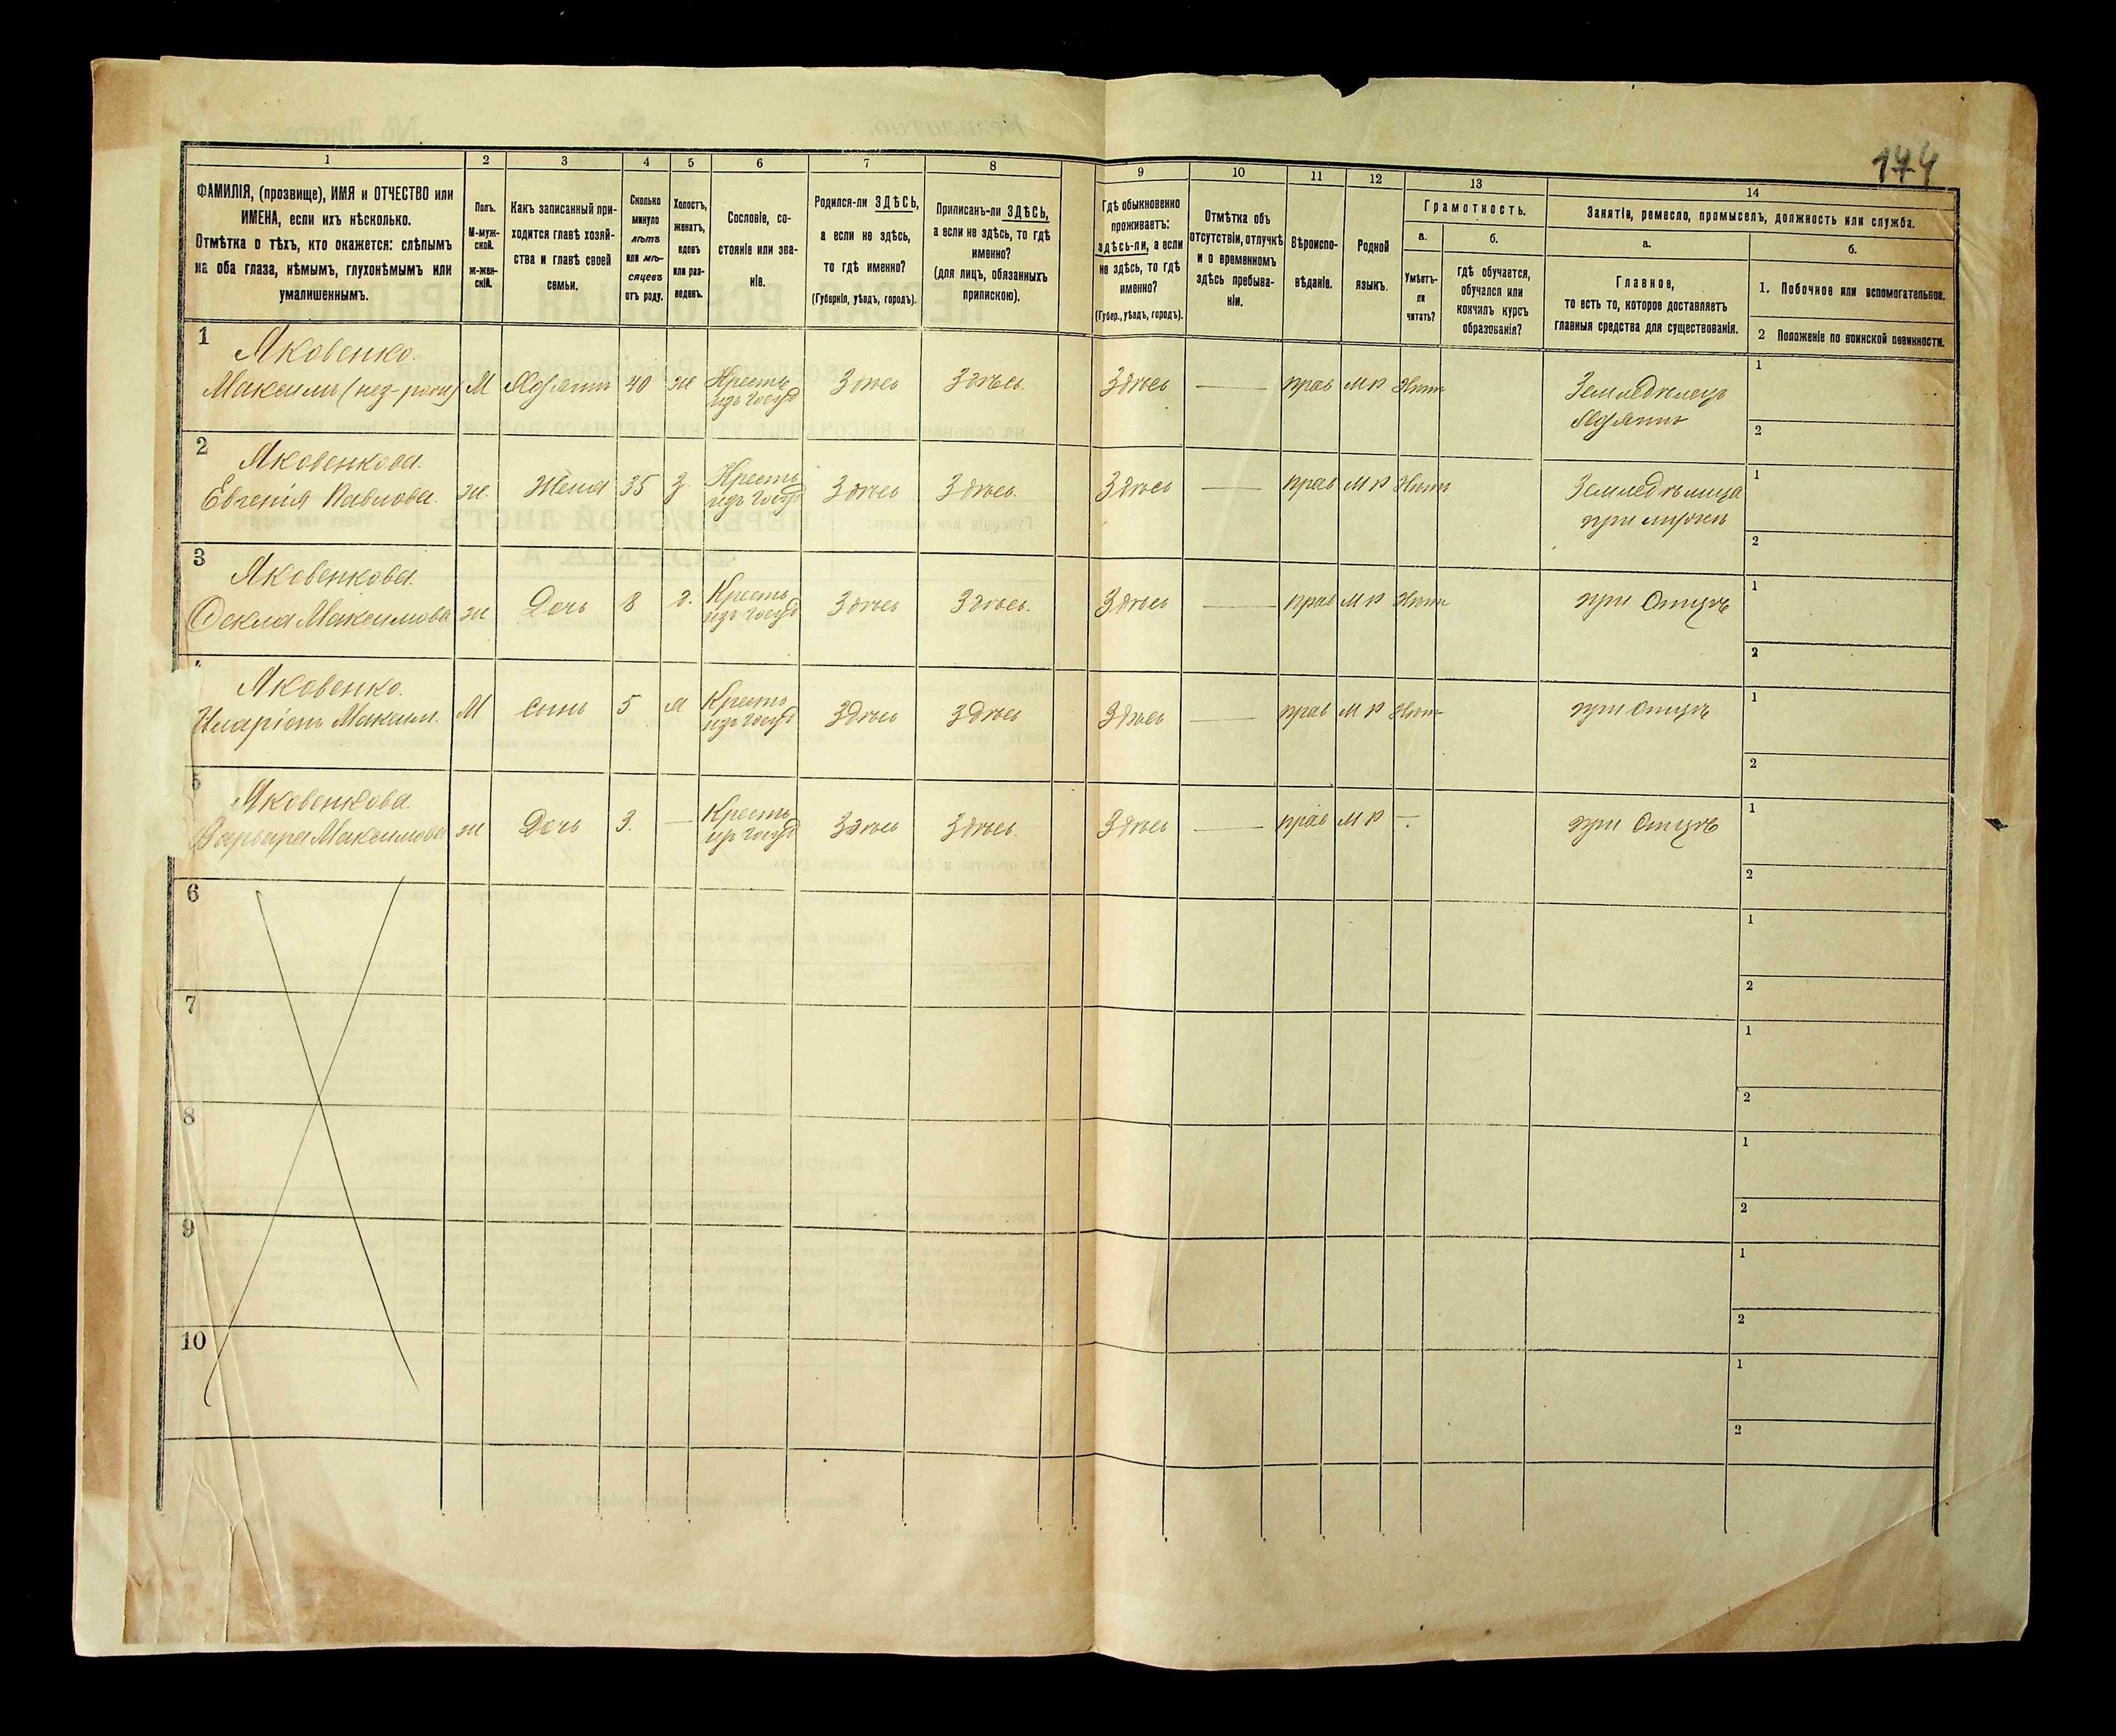 174
1
2
3
4
5
6
7
8
9
10
11
12
13
14
ФАМИЛІЯ, (прозвище), ИМЯ и ОТЧЕСТВО или
ИМЕНА, если ихъ нѣсколько.
Отмѣтка о тѣхъ, кто окажется: слѣпымъ
на оба глаза, нѣмымъ, глухонѣмымъ или
умалишеннымъ.
Полъ.
М-муж-
ской.
Ж-жен-
скій.
Какъ записанный при-
ходится главѣ хозяй-
ства и главѣ своей
семьи.
Сколько
минуло
лѣтъ
или мѣ-
сяцевъ
отъ роду.
Холостъ,
женатъ,
вдовъ
или раз-
веденъ.
Сословіе, со-
стояніе или зва-
ніе.
Родился-ли ЗДѢСЬ,
а если не здѣсь,
то гдѣ именно?
(Губернія, уѣздъ, городъ).
Приписанъ-ли ЗДѢСЬ,
а если не здѣсь, то гдѣ
именно?
(для лицъ, обязанныхъ
припискою).
Гдѣ обыкновенно
проживаетъ:
здѣсь-ли, а если
не здѣсь, то гдѣ
именно?
(Губер., уѣздъ, городъ).
Отмѣтка объ
отсутствіи, отлучкѣ
и о временномъ
здѣсь пребыва-
ніи.
Вѣроиспо-
вѣданіе.
Родной
языкъ.
Грамотность.
а.
Умѣетъ-
ли
читать?
б.
гдѣ обучается,
обучался или
кончилъ курсъ
образованія?
Занятіе, ремесло, промыселъ, должность или служба.
а.
Главное,
то есть то, которое доставляетъ
главныя средства для существованія.
б.
1. Побочное или вспомогательное.
2 Положеніе по воинской повинности.
1
Яковенко.
Максимъ М Хозяинъ 40 ж Кресть изъ Госуд Здѣсь Здѣсь. Здѣсь — прав МР Нѣтъ Земледѣлецъ
Хозяинъ
1
2
2
Яковенкова.
Евгенія Павлова. ж. Жена 35 з. Кресть изъ Госуд Здѣсь Здѣсь. Здѣсь — прав МР Нѣтъ Земледѣлица
при мужѣ
1
2
3
Яковенкова.
Ѳекла Максимова ж Дочь 8 д. Кресть изъ Госуд Здѣсь Здѣсь. Здѣсь — прав МР Нѣтъ при Отцѣ
1
2
Яковенко.
Иларіонъ Максим. М Сынъ 5 Кресть изъ Госуд Здѣсь Здѣсь Здѣсь — прав МР Нѣтъ при Отцѣ
1
2
5
Яковенкова.
Варвара Максимова ж Дочь 3. — Кресть из Госуд Здѣсь Здѣсь. Здѣсь — прав МР — при Отцѣ
1
2
6
1
2
7
1
2
8
1
2
9
1
2
10
1
2